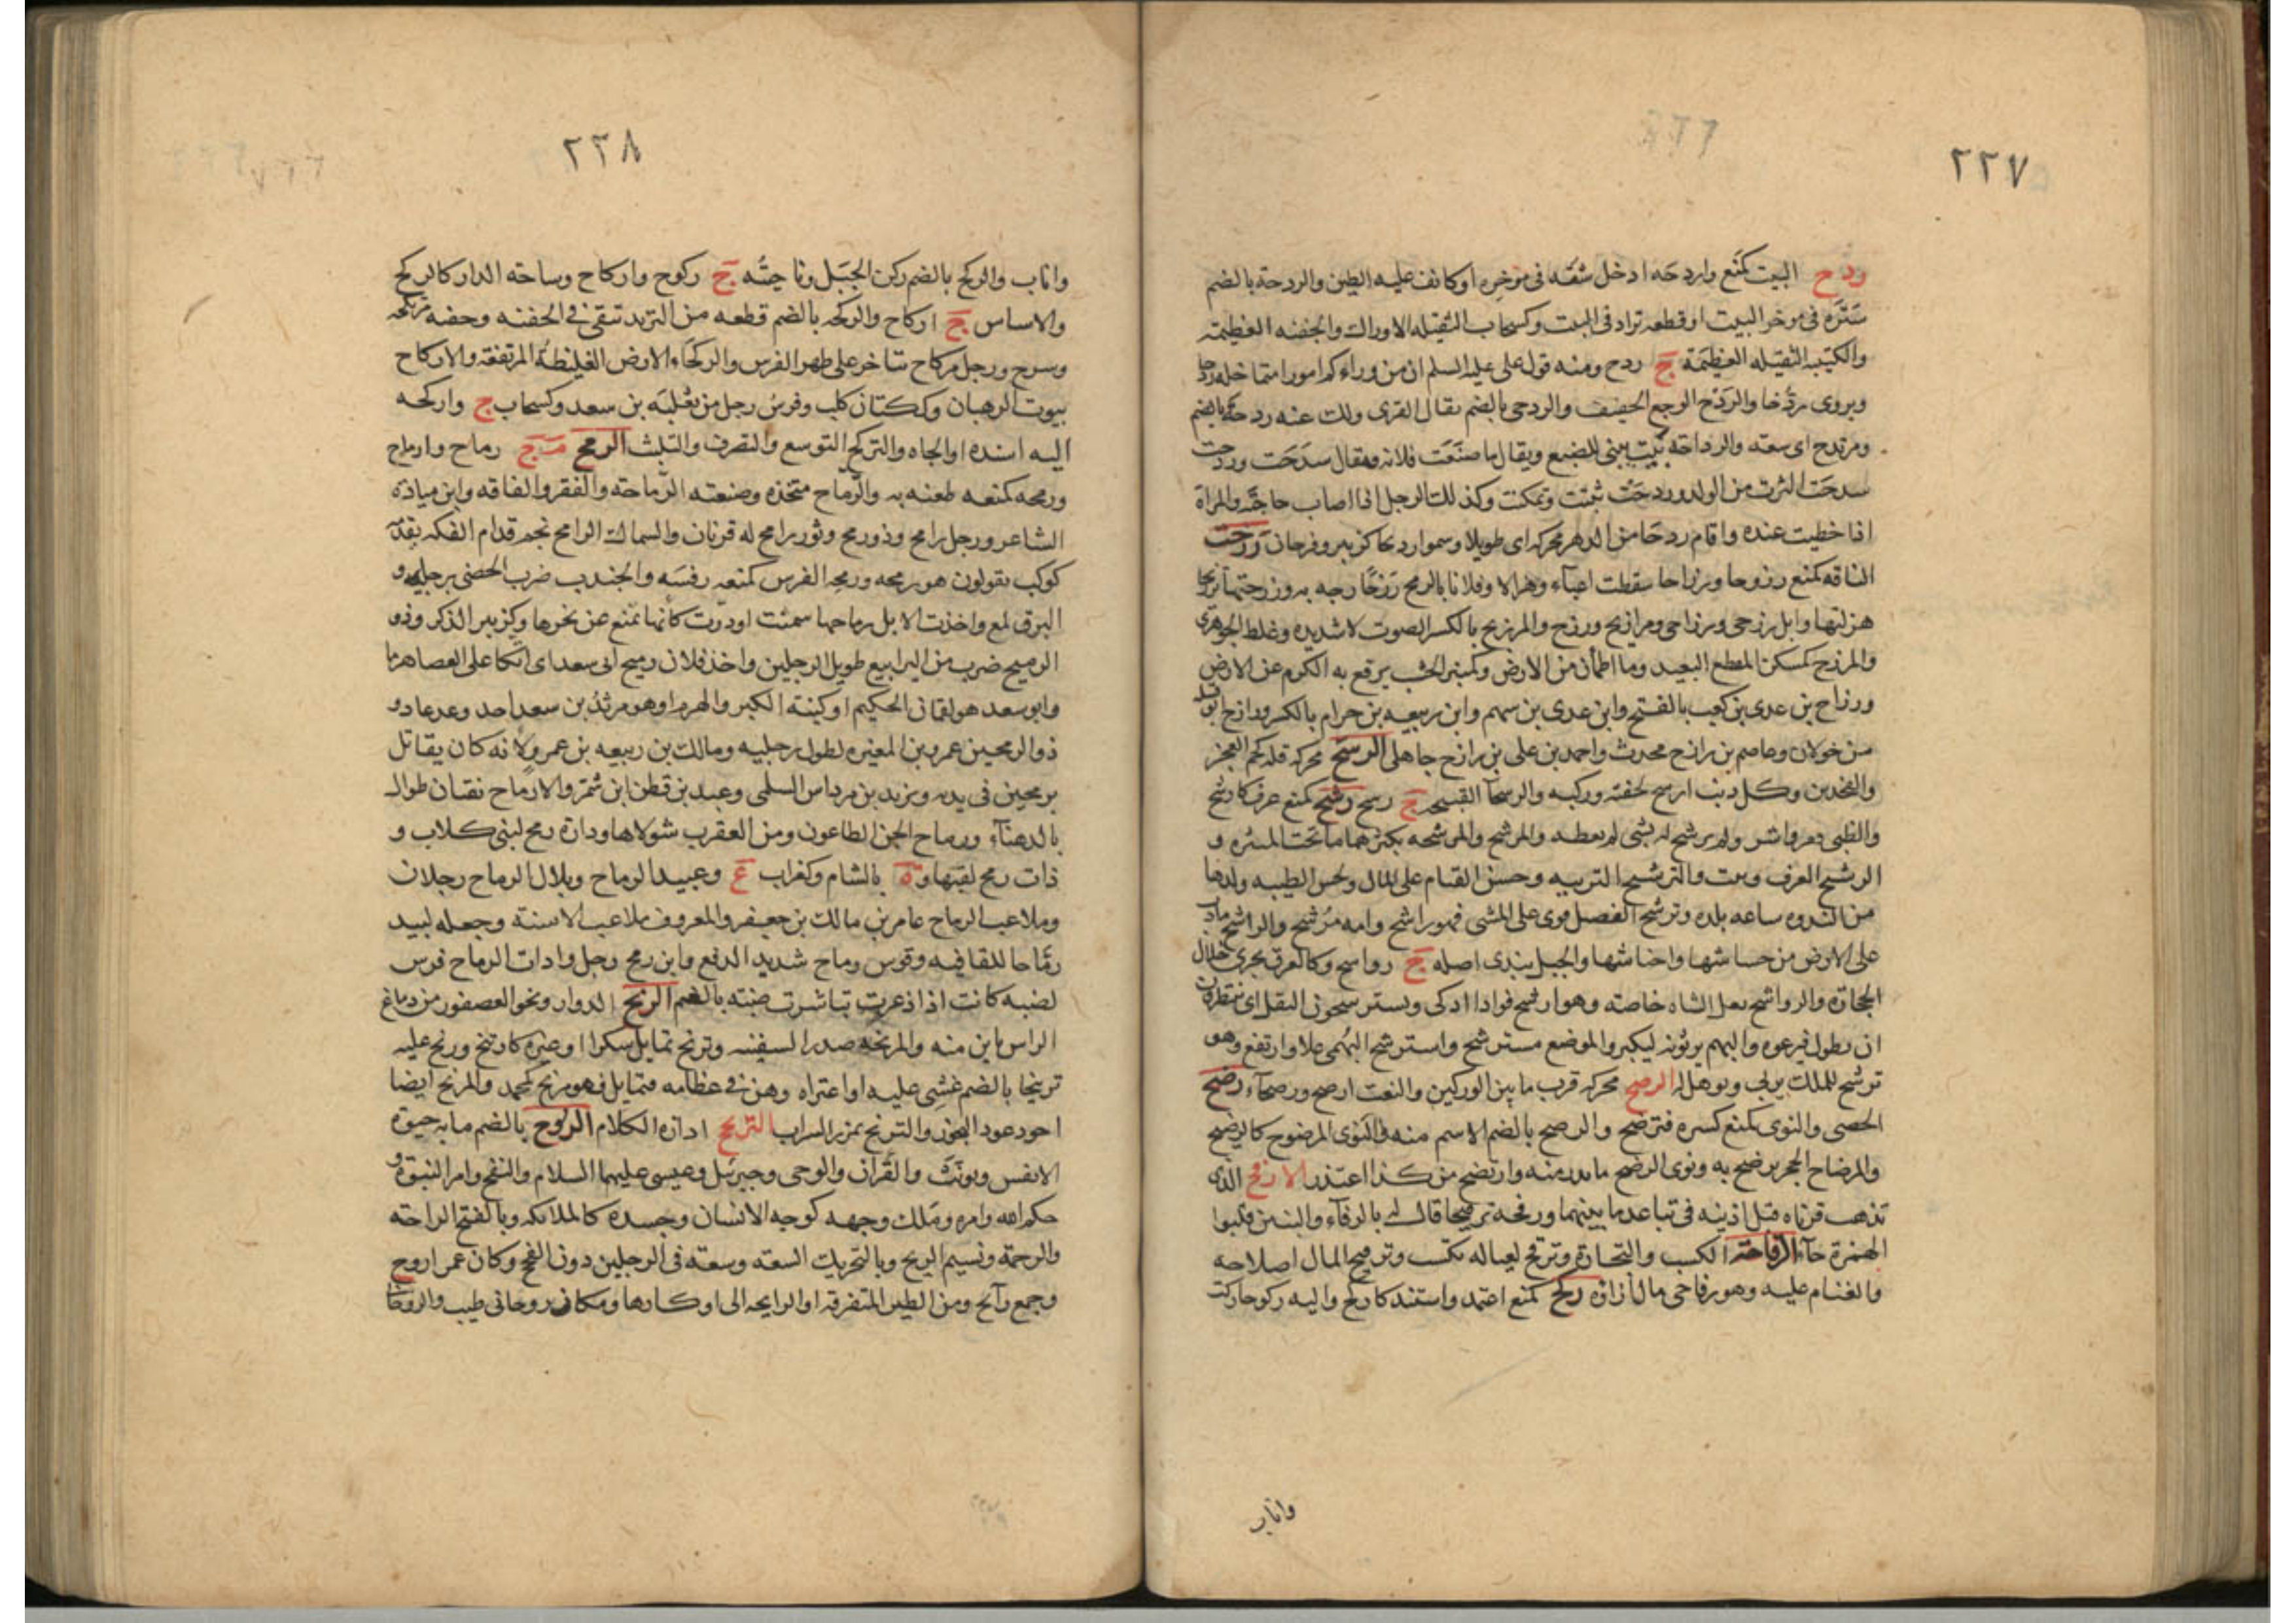 ٢٢٧
ردح البيت كمنع واردحه ادخل شقه فى موخره او كاثف عليه الطين والردحة بالضم
سترة فى موخر البيت او قطعه تزاد فى البيت وكسحاب الثقيله الاوراك والجفنه العظيمه
والكتيبه الثقيله العظيمة ج ردح ومنه قول على عليه السلم ان من وراءكم امورا متماحله ردحا
ويروى مردحا والردح الوجع الخفيف والردحى بالضم بقال القرى ولك عنه ردحه بالضم
ومرتدح اى سعته والرداحة بيت يبنى للضبع ويقال ما صنعت فلانه فيقال سدحت وردحت
سدحت اكثرت من الولد وردحت ثبتت وتمكنت وكذلك الرجل اذا اصاب حاجته والمراة
اذا حظيت عنده واقام ردحا من الدهر محركه اى طويلا وسموا ردحا كزبير وفرحان رزحت
الناقه كمنع رزوحا ورزاحا سقطت اعياء وهزالا وفلانا بالرمح رزحا زجه به ورزحتها ترزيحا
هزلتها وابل رزحى ورزاحى ومرازيح ورزح والمرزيح بالكسر الصوت لا شديده وغلط الجوهرى
والمرزح كمسكن المطع البعيد وما اطمأن من الارض وكمنبر الخشب يرفع به الكرم عن الارض
ورزاح بن عدى بن كعب بالفتح وابن عدى بن سهم وابن ربيعه بن حرام بالكسر ورازح ابو
من خولان وعاصم بن رازح محدث واحمد بن على بن رازح جاهلى الرسح محركه قله لحم العجز
والفخذين وكل ذئب ارسح لخفته وركيه والرسحآ القبيحه ج رسح رشح كمنع عرق كارشح
والظبى قفز واشر ولم يرشح له بشى لم يعطه والمرشح والمرشحه بكسرهما ما تحت المثيره و
الرشيح العرق ونبت والترشيح التربيه وحسن القيام على المال ولحس الظبيه ولدها
من الندوه ساعه تلده وترشح الفصيل قوى على المشى فهو راشح وامه مرشح والراشح ما دب
على الارض من حشاشها واحناشها والجبل يندى اصله ج رواسح وكالعرق يجرى خلال
الحجارة والرواشح ثعل الشاه خاصة وهو ارشح فوادا اذكى ويسترشحون البقل اى ينتظرون
ان يطول فيرعوه والبهم يربونه ليكبر والموضع مسترشح واسترشح البهمى علا وارتفع وهو
ترشح للملك يربى ويوهل له الرصح محركه قرب ما بين الوركين والنعت ارصح ورصحآء رضح
الحصى والنوى كمنع كسره فترضح والرضح بالضم الاسم منه والنوى المرضوح كالرضيح
والمرضاح الحجر يرضح به ونوى الرضح ما ندر منه وارتضح من كذا اعتذر الارفح الذى
تذهب قرناه قبل اذنيه فى تباعد ما بينهما ورفحه ترفيحا قال له بالرفآء والبنين قلبوا
الهمزة حآء الرقاحة الكسب والتجارة وترقح لعياله تكسب وترقيح المال اصلاحه
والقيام عليه وهو رقاحى مال ازاؤه ركح كمنع اعتمد واستند كاركح واليه ركوحا ركن
واناب
٢٢٨
واناب والركح بالضم ركن الجبل وناحيته ج ركوح واركاح وساحه الدار كالركح
والاساس ج اركاح والركحه بالضم قطعه من الثريد تبقى فى الجفنه وجفنه مرتكحه
وسرج ورجل مركاح يتاخر على ظهر الفرس والركحاء الارض الغليظة المرتفعه والاركاح
بيوت الرهبان وككتان كلب وفرس رجل من ثعلبه بن سعد وكسحاب ج واركحه
اليه اسنده او الجاه والتركح التوسع والتصرف والتلبث الرمح ج رماح وارماح
ورمحه كمنعه طعنه به والرماح متخذه وصنعته الرماحة والفقر والفاقه وابن ميادة
الشاعر ورجل رامح وذو رمح وثور رامح له قرنان والسماك الرامح نجم قدام الفكه يقدمه
كوكب يقولون هو رمحه ورمحه الفرس كمنعه رفسه والجندب ضرب الحصى برجليه و
البرق لمع واخذت الابل رماحها سمنت او درت كانها تمنع عن نحرها وكزبير الذكر وذو
الرميح ضرب من اليرابيع طويل الرجلين واخذ فلان رميح ابى سعد اى اتكا على العصا هرما
وابو سعد هو لقمان الحكيم او كنية الكبر والهرم او هو مرثد بن سعد احد وفد عاد و
ذو الرمحين عمرو بن المغيره لطول رجليه ومالك بن ربيعه بن عمرو لانه كان يقاتل
برمحين فى يديه ويزيد بن مرداس السلمى وعبد بن قطن ابن شمر والارماح نقيان طوال
بالدهنآء ورماح الجن الطاعون ومن العقرب شولاها ودارة رمح لبنى كلاب و
ذات رمح لقبها وة بالشام وكغراب ع وعبيد الرماح وبلال الرماح رجلان
وملاعب الرماح عامر بن مالك بن جعفر والمعروف ملاعب الاسنة وجعله لبيد
رماحا للقافيه وقوس رماح شديد الدفع وابن رمح رجل وادات الرماح فرس
لضبه كانت اذا ذعرت تباشرت ضبته بالضم الرنح الدوار ونحو العصفور من دماغ
الراس باين منه والمرنحه صدر السفينه وترنح تمايل سكرا او غيره كارتنح ورنح عليه
ترنيحا بالضم غشى عليه او اعتراه وهن فى عظامه فتمايل فهو مرنح كمحمد والمرنح ايضا
اجود عود البخور والترنح تمزز السراب التريح ادارة الكلام الروح بالضم ما به حيوة
الانفس ويونث والقران والوحى وجبرئيل وعيسى عليهما السلام والنفخ وامر النبوة و
حكم الله وامره وملك وجهه كوجه الانسان وجسده كالملائكه وبالفتح الراحة
والرحمة ونسيم الريح وبالتحريك السعه وسعة فى الرجلين دون الفحج وكان عمر اروح
وجمع رآئح ومن الطير المتفرقه او الرايحه الى اوكارها ومكان روحانى طيب والروحانى